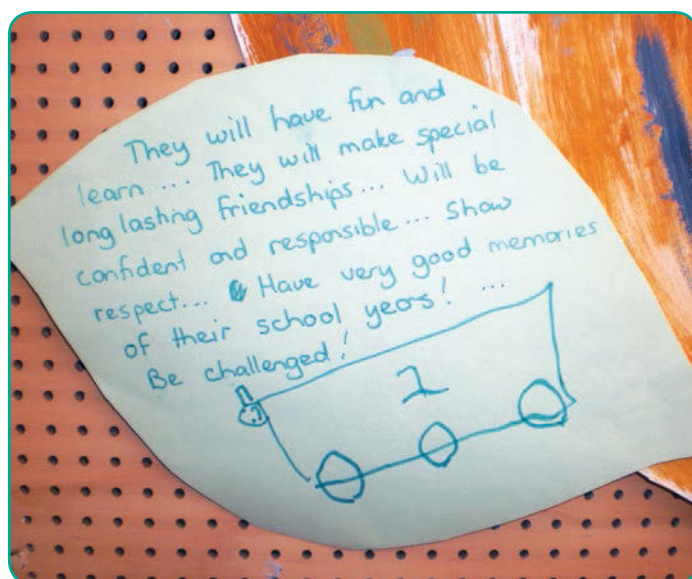 They will have fun and
learn ... They will make special
long lasting friendships... Will be
confident and responsible... Show
respect... Have very good memories
of their school years! ...
Be challenged!
1